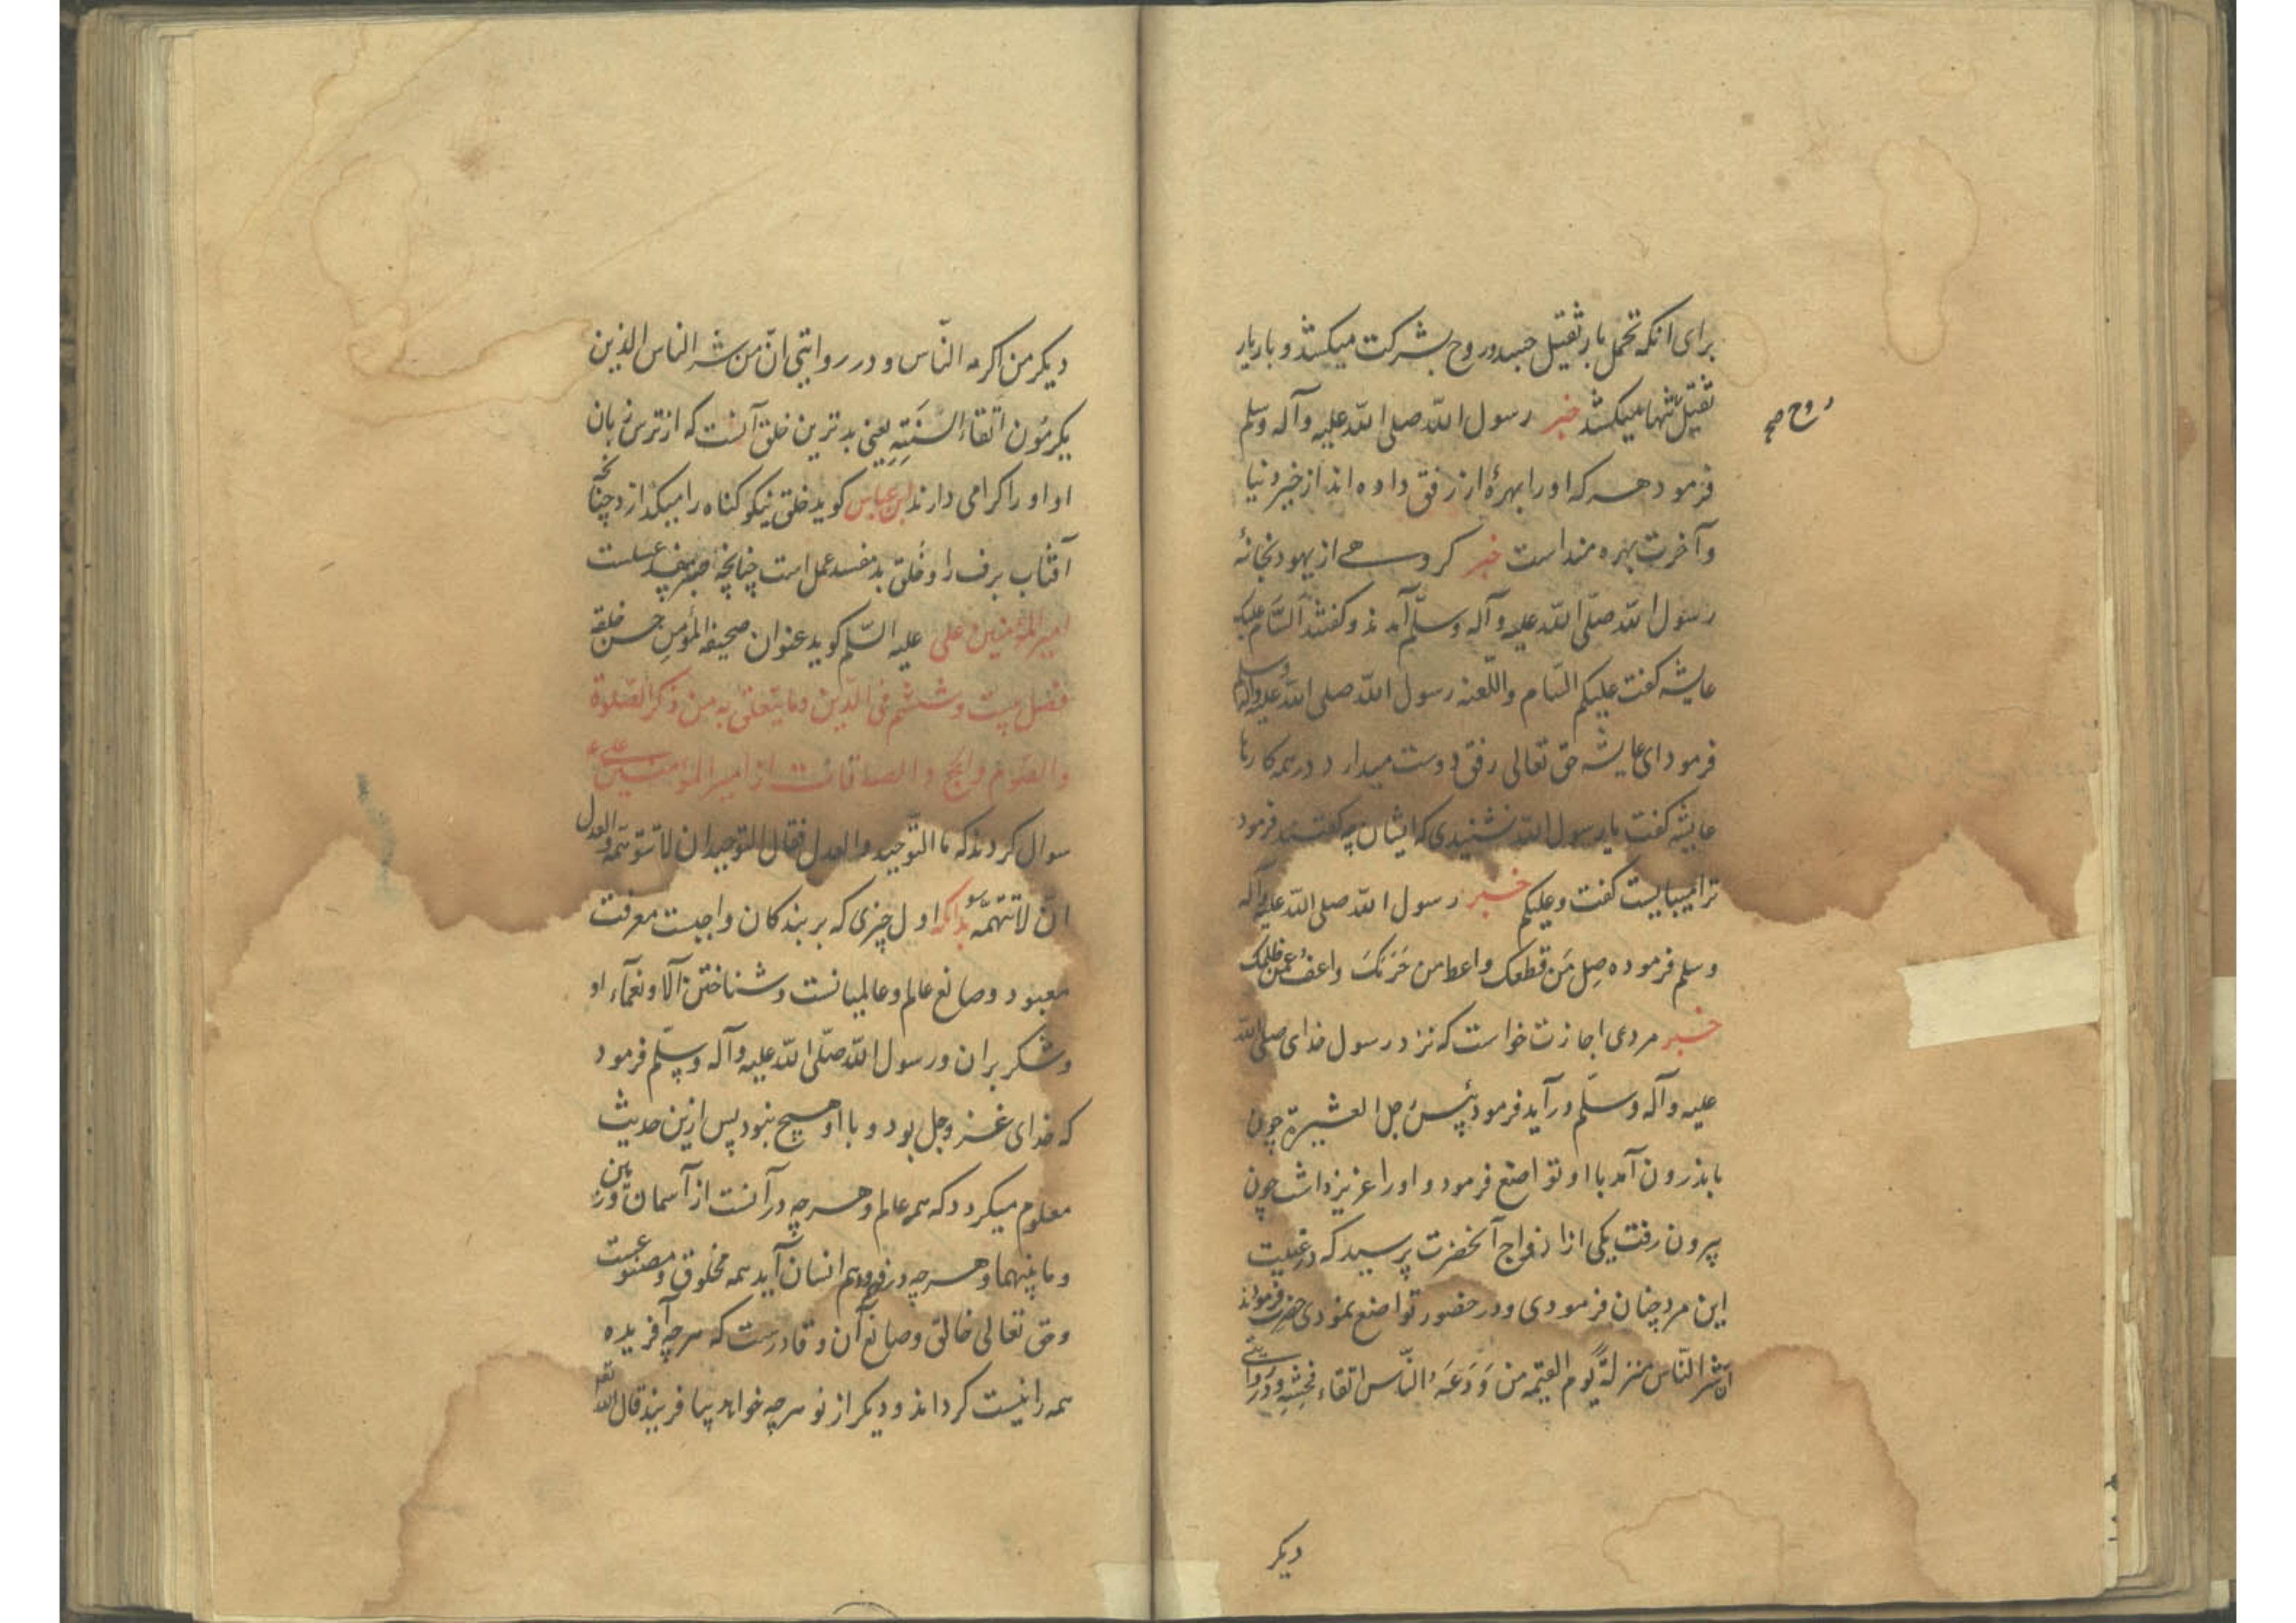 برای انکه تحمل بار ثقیل جسد و روح بشرکت میکنند و بار یار
ثقیل تنها میکشد خبر رسول الله صلی الله علیه وآله وسلم
روح صح
فرمود هر که او را بهرهٔ از رفق داده اند از خیر دنیا
و آخرت بهره مند است خبر کروهے از یهود بخانهٔ
رسول الله صلّی الله علیه وآله وسلّم آمدند و کفتند السَّام علیک
عایشه کفت علیکم السّام واللّعنه رسول الله صلی الله علیه وآله وسلم
فرمود ای عایشه حق تعالی رفق دوست میدارد در همه کارها
عایشه کفت یا رسول الله نشنیدی که ایشان چه کفتند فرمود
ترا میبایست کفت وعلیکم خبر رسول الله صلی الله علیه وآله
وسلم فرموده صِل مَن قطعک واعط من حَرَمَکَ واعفُ عمّن ظلمک
خبر مردی اجازت خواست که نزد رسول خدای صلی الله
علیه وآله وسلّم درآید فرمود بئس رجل العشیرة چون
باندرون آمد با او تواضع فرمود و او را عزیز داشت چون
بیرون رفت یکی از ازواج آنحضرت پرسید که در غیبت
این مرد چنان فرمودی و در حضور تواضع نمودی حضرت فرمودند
انّ شرّ النّاس منزلةً یوم القیمه من وَدَعَهُ النّاس اتقاء فحشِهِ و در روایتی
دیکر
دیکر من اکرمه النّاس و در روایتی انّ من شر الناس الذین
یکرمُون اتّقاء السنَتِهِم یعنی بدترین خلق آنست که از ترس زبان
او او را کرامی دارند ابن عباس کوید خلق نیکو کناه را میکدازد چنانچه
آفتاب برف را و خُلق بد مفسد عمل است چنانچه صبر مفسد عسلست
امیر المؤمنین علی علیه السّلم کوید عنوان صحیفة المؤمن حسن خلقه
فصل بیست و ششم فی الدّین وما یتعلق به من ذکر الصّلوة
والصّوم والحج والصدقات از امیر المؤمنین علی ع
سوال کردند که ما التّوحید والعدل فقال التوحید ان لا تتوهّمه والعدل
انّ لا تتّهمه بدانکه اول چیزی که بر بندکان واجبست معرفت
معبود و صانع عالم و عالمیانست و شناختن آلا و نعمآء او
و شکر بران و رسول الله صلّی الله علیه وآله وسلّم فرمود
که خدای عزّ وجل بود و با او هیچ نبود پس ازین حدیث
معلوم میکردد که همه عالم و هر چه در آنست از آسمان و زمین
و ما بینهما و هر چه در فهم و وهم انسان آید همه مخلوق و مصنوعست
و حق تعالی خالق و صانع آن و قادرست که هر چه آفریده
همه را نیست کرداند و دیکر از نو هر چه خواهد بیافریند قال الله تعالی